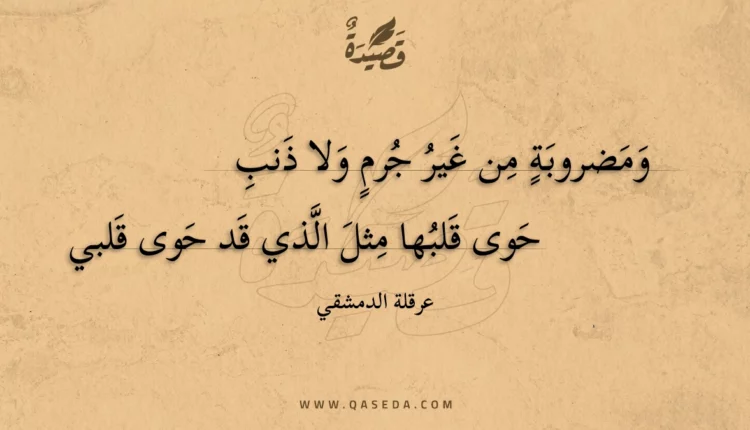 قَصِيْدَةٌ
وَمَضروبَةٍ مِن غَيرُ جُرمٍ وَلا ذَنبِ
حَوى قَلبُها مِثلَ الَّذي قَد حَوى قَلبي
عرقلة الدمشقي
WWW.QASEDA.COM